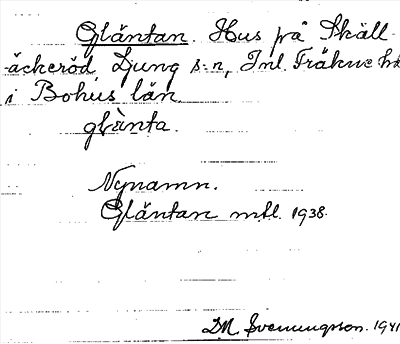 Gläntan Hus på Skäll-
äckeröd, Ljung s:n, Inl. Fräkne hd
i Bohus län
glänta.
Nynamn.
Gläntan mtl. 1938.
DM Svenningson. 1941